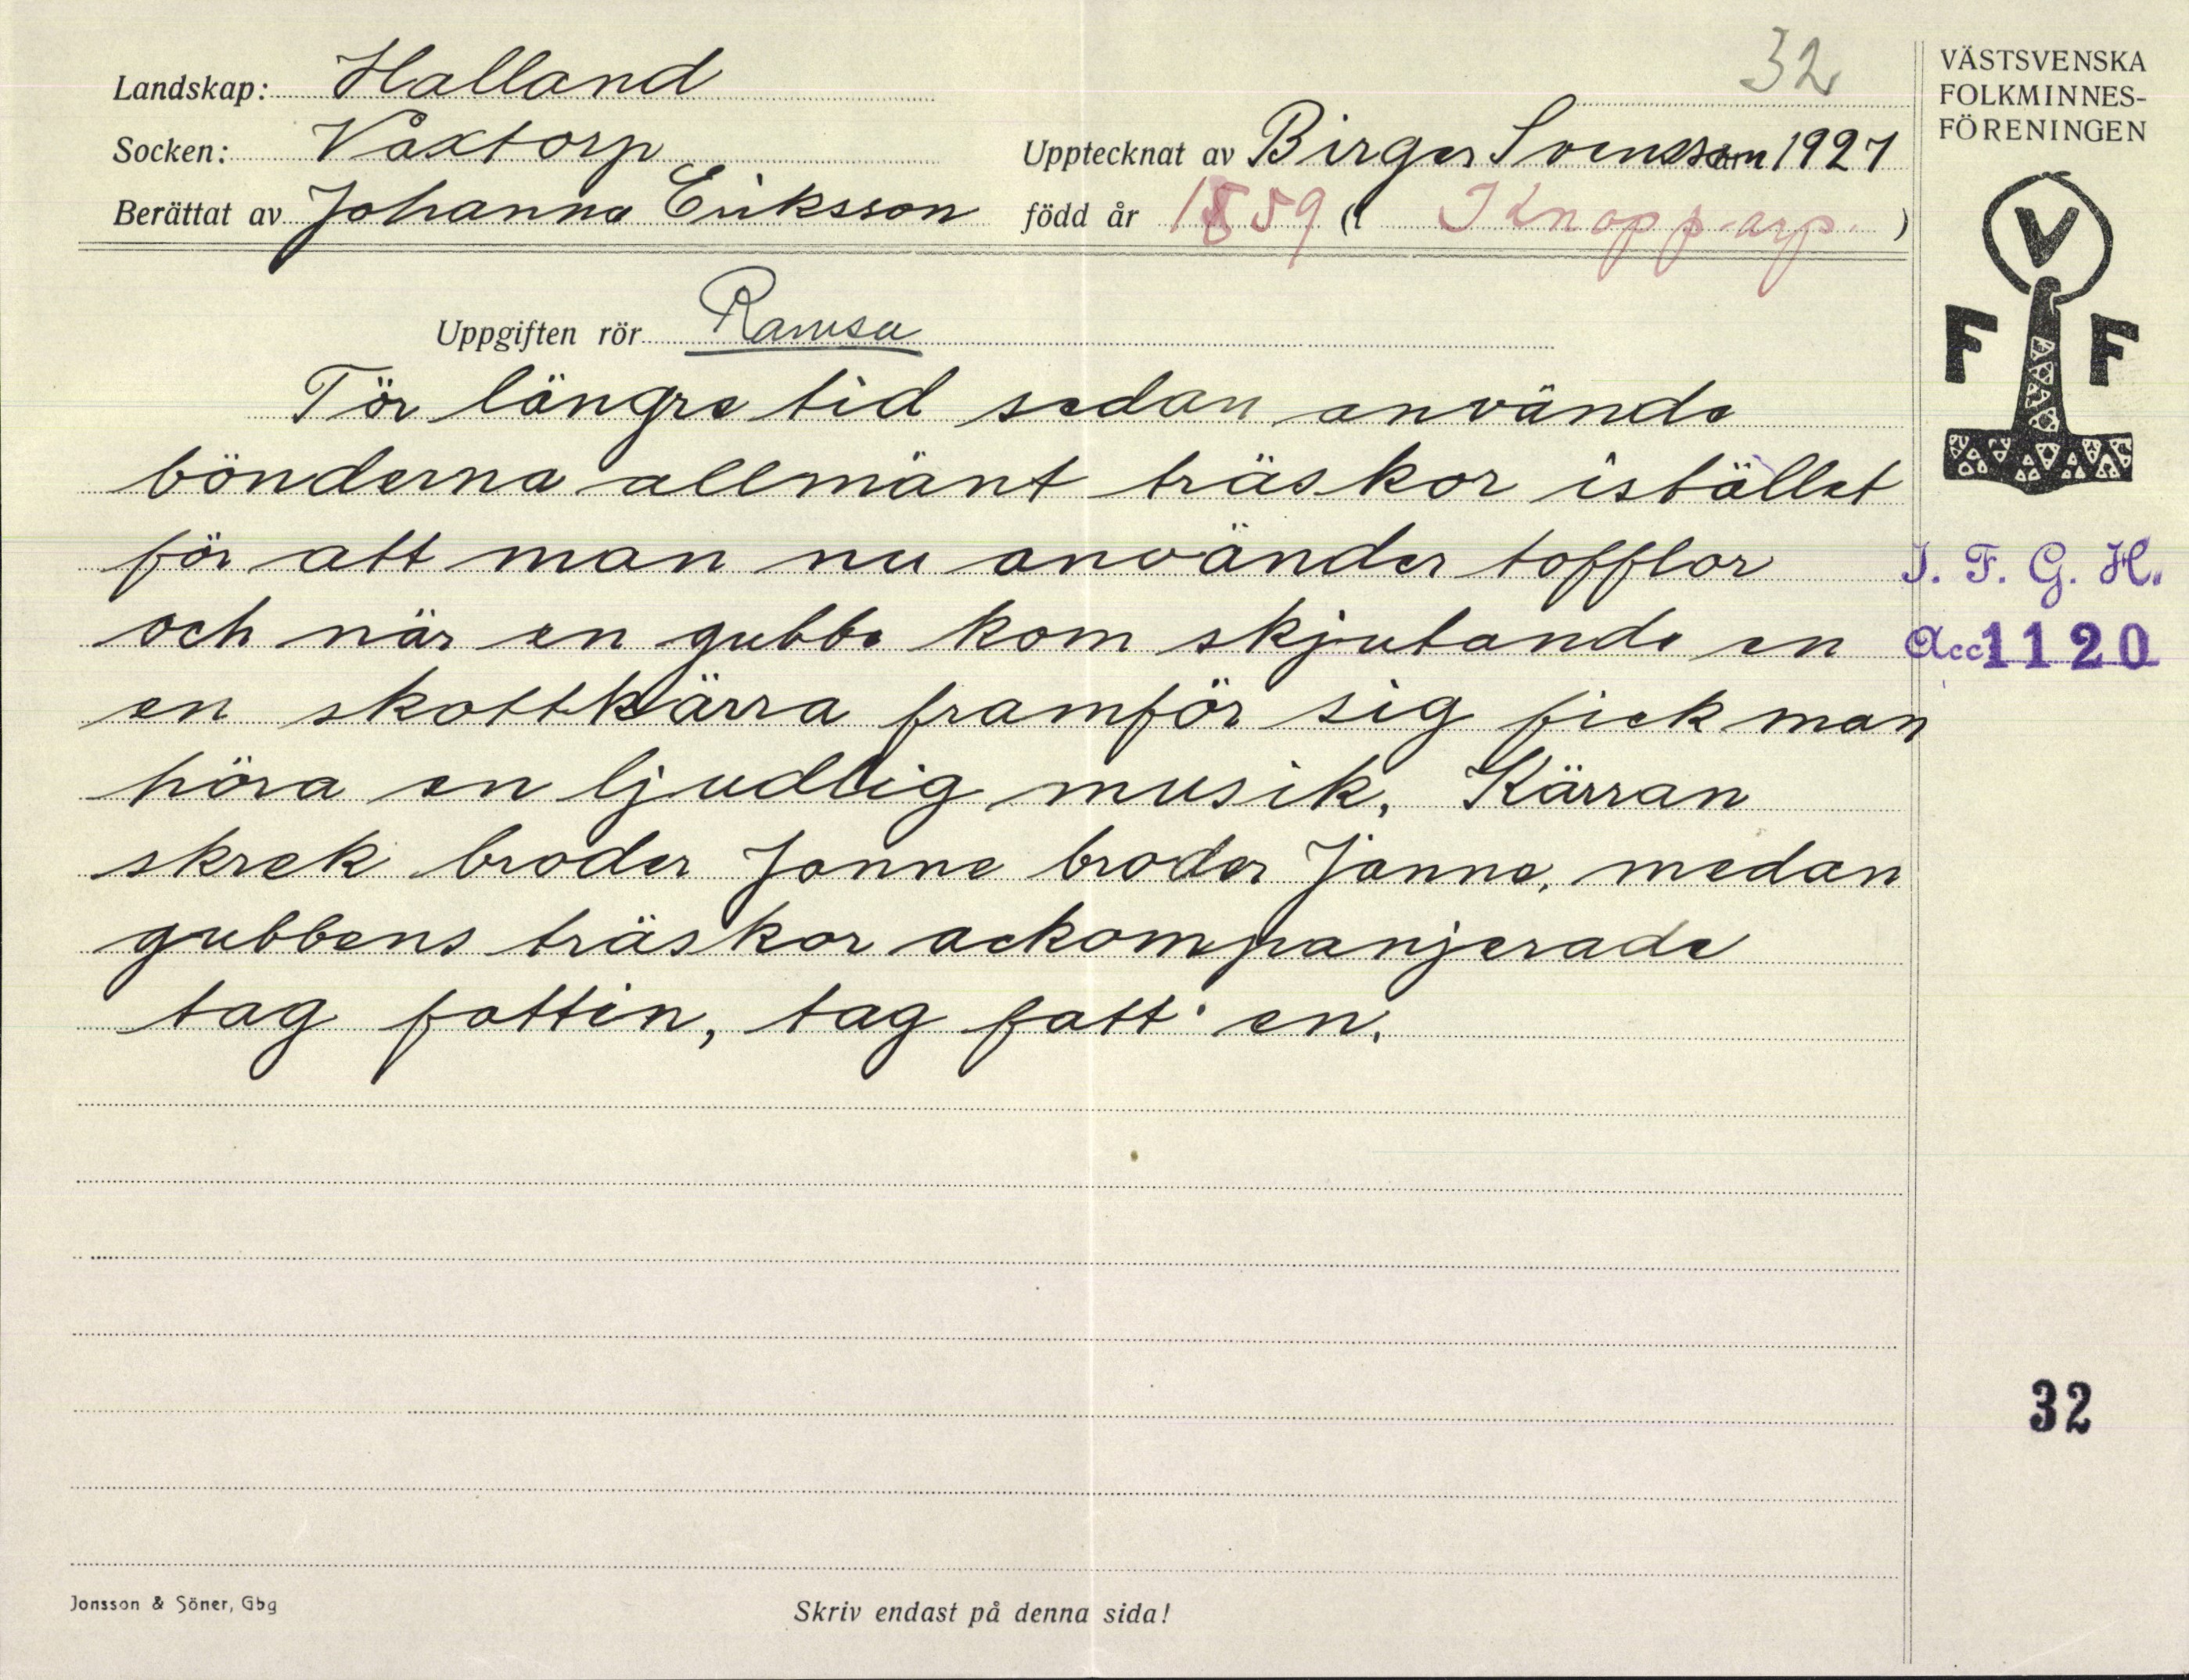 32
Landskap: Halland
Socken: Våxtorp
Upptecknat av Birger Svensson 1927
Berättat av Johanna Eriksson
född år 1859 (i Knopparp.)
VÄSTSVENSKA
FOLKMINNES-
FÖRENINGEN
V
F F
Uppgiften rör Ramsa
För längre tid sedan använde
bönderna allmänt träskor istället
för att man nu använder tofflor
och när en gubbe kom skjutande en
en skottkärra framför sig fick man
höra en ljudlig musik. Kärran
skrek broder Janne broder Janne, medan
gubbens träskor ackompanjerade
tag fattin, tag fatt' en.
I. F. G. H.
Acc 1120
32
Jonsson & Söner, Gbg
Skriv endast på denna sida!